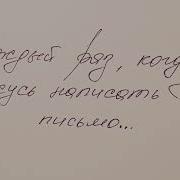 ждый раз, когд
усь написать
письмо...